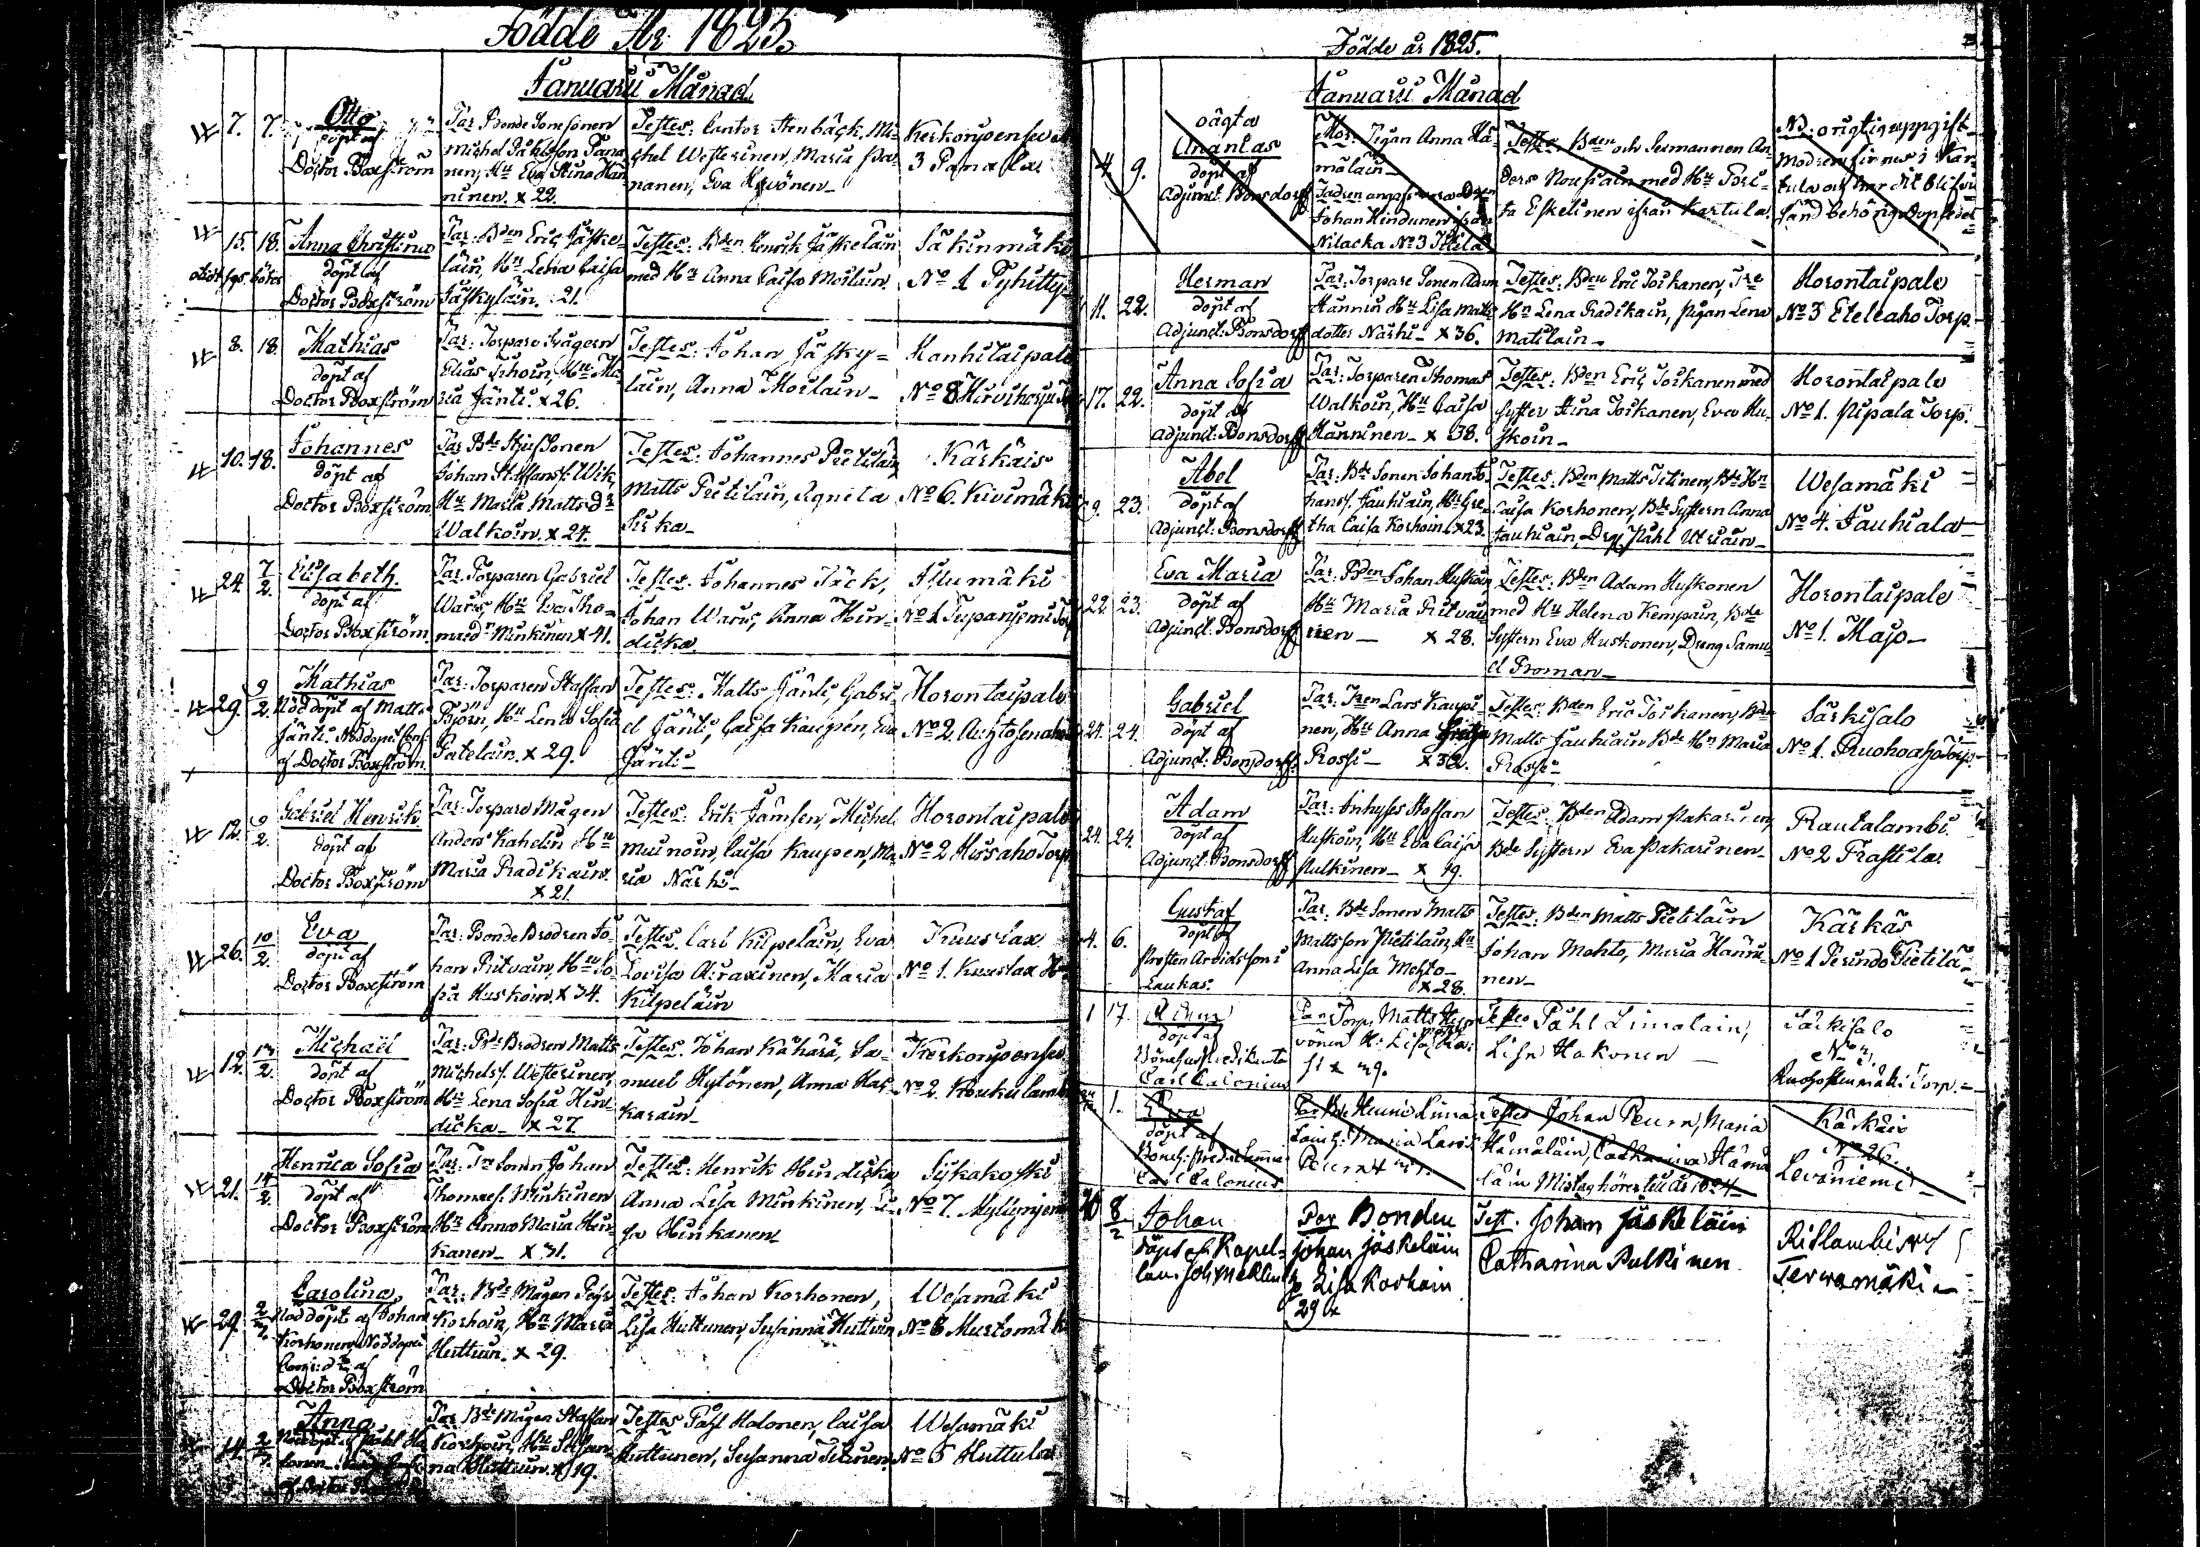 Födde År 1825.
Januarii Månad
7. 7. Otto
döpt af
Doctor Boxström
Par Bonde Sonesonen
Michel Påhlsson Pana
nen, Hu Eva Stina Hän
ninen. x 22.
Testes: Cantor Stenbäck, Mi-
chel Westerinen, Maria Pa-
nanen, Eva Hyvönen-
Kerkonjoensuu
3 Panala.
15. 18. Anna Christina
döpt af
Doctor Boxström
Par: Bden Eric Jäske-
läin, Hu Lena Caisa
Jäskyläin. 21.
Testes: Bden Henrik Jäskeläin
med Hu Anna Caisa Moilain.
Säkinmäki
No 1 Pyhitty
8. 18. Mathias
döpt af
Doctor Boxström
Par: Torpare Svågern
Elias Tihoin, Hu Ma
ria Jänti. x 26.
Testes: Johan Jäsky=
läin, Anna Moilain-
Kanhitaipale
No 8 Hirviharju
10. 18. Johannes
döpt af
Doctor Boxström
Par Bde Stjufsonen
Johan Staffans. Wik,
Hu Maria Matts Dr
Walkoin. x 24.
Testes: Johannes Pietiläin
Matts Pietiläin, Agneta
Sirka-
Kärkäis
No 6. Kivimäki
24. 7/2. Elisabeth.
döpt af
Doctor Boxström
Par. Torparen Gabriel
Waris, Hu Eva Tho-
masdr Minkinen x 41.
Testes. Johannes Jäck,
Johan Waris, Anna Hin-
dicka.
Istumäki
No 1 Tupaniemi
29. 9/2. Mathias
Nöddöpt af Matts
Jänti. Nöddopet
af Doctor Boxström
Par: Torparen Staffan
Björn, Hu Lena Sofia
Pateläin. x 29.
Testes: Matts Jänti, Gabri-
el Jänti, Caisa Kaupen, Eva
Jänti-
Horontaipale
No 2.
12. 9/2. Gabriel Henrik
döpt af
Doctor Boxström
Par: Torpare Mågen
Anders Kahelin Hu
Maria Radikain.
x 21.
Testes. Erik Jämsen, Michel
Muinoin, Caisa Kaupen, Ma
ria Närhi-
Horontaipale
No 2 Torp
26. 10/2. Eva
döpt af
Doctor Boxström
Par: Bonde Brodren Jo-
han Ritvain, Hu So-
fia Huskoin. x 34.
Testes. Carl Kilpeläin, Eva
Lovisa Miraxinen, Maria
Kilpeläin
Kuuslax
No 1. Kuuslax
12. 13/2. Michaël
döpt af
Doctor Boxström
Par: Bde Brodren Matts
Michels. Westerinen,
Hu Lena Sofia Hin-
dicka- x 27.
Testes. Johan Kähärä, Sa-
muel Hytönen, Anna Has-
karain-
Kerkonjoensuu
No 2. Koukulambi
21. 14/2. Henrica Sofia
döpt af
Doctor Boxström
Par: Johan
Thomass. Minkinen
Hu Anna Maria Hin-
kanen- x 31.
Testes: Henrik Hindicka,
Anna Lisa Minkinen, Li-
sa Hinkanen-
Sikakoski
No 7.
29. Carolina
Nöddöpt af Johan
Korhonen, Nöddopet
af
Doctor Boxström
Par: Bde Mågen
Korhoin, Hu Maria
Huttuin. x 29.
Testes: Johan Korhonen,
Lisa Huttunen, Susanna Huttuin
Wesamäki
No 8 Murtomäki
14. Anna
Nöddöpt af Påhl Ha
lonen
Par Bde Mågen Staffan
Korhoin, Hu Susan-
na Huttuin. x 19.
Testes Påhl Halonen, Caisa
Huttunen, Susanna Titinen.
Wesamäki
No 5 Huttula
Födde år 1825.
Januarii Månad
4. 9. oägta
Ananias
döpt af
Adjunct. Bonsdorff
Mor: Pigan Anna Hä-
mäläin-
Fadren
Johan Hindunen ifrån
Nilacka No 3
Testes: Bden och Sexmannen An-
ders Nousiain med Hu Bri-
ta Eskelinen ifrån Kartula.
NB: origtig uppgift
Modren finnes i Kar
tula och har dit blifvit
sänd behörig dopsedel
11. 22. Herman
döpt af
Adjunct: Bonsdorff
Par: Torpare Sonen Adam
Hännin Hu Lisa Matts
dotter Närhi- x 36.
Testes: Bden Eric Toskanen,
Hn Lena Radikain, Pigan Lena
Matilain-
Horontaipale
No 3 Eteleaho Torp.
17. 22. Anna Sofia
döpt af
Adjunct: Bonsdorff
Par: Torparen Thomas
Walkoin, Hu Caisa
Hänninen- x 38.
Testes: Bden Eric Toskanen med
syster Stina Toskanen, Eva Hu-
skoin-
Horontaipale
No 1. Pipala Torp.
9. 23. Abel
döpt af
Adjunct: Bonsdorff
Par: Bde Sonen Johan Jo-
hans. Jauhiain, Hu Gre-
tha Caisa Korhoin. x 23.
Testes: Bden Matts Titinen, Bde Hn
Caisa Korhonen, Bde Systern Anna
Jauhiain, Dreg. Påhl Utriain-
Wesamäki
No 4. Jauhiala-
22. 23. Eva Maria
döpt af
Adjunct: Bonsdorff
Par: Bden Johan Huskoin,
Hu Maria Ritvai-
nen- x 28.
Testes: Bden Adam Huskonen
med Hu Helena Kempain, Bde
Systern Eva Huskonen, Dreng Samu-
el Proman-
Horontaipale
No 1. Majo-
24. 24. Gabriel
döpt af
Adjunct: Bonsdorff.
Par: Lars Kaupi-
nen, Hu Anna
Rossi- x 32.
Testes: Bden Eric Toskanen, Bden
Matts Jauhiain Bde Hn Maria
Rossi-
Särkisalo
No 1. Ruohoaho Torp.
24. 24. Adam
döpt af
Adjunct: Bonsdorff
Par: Inhyses Staffan
Huskoin, Hu Eva Caisa
Pulkinen- x 49.
Testes: Bden Adam Pakarinen,
Bde Systern Eva Pakarinen-
Rautalambi
No 2 Frastila.
4. 6. Gustaf
döpt af
Prosten Arvidsson i
Laukas.
Par: Bde Sonen Matts
Mattsson Pietiläin, Hu
Anna Lisa Mohto-
x 28.
Testes: Bden Matts Pietiläin
Johan Mohto, Maria Hänni-
nen-
Kärkäs
No 1 Perindö Pietilä-
1 17. Adam
döpt af
Carl Calonius
Par Torp. Matts
vönen H: Lisa
x 39.
Testes Påhl Limalain,
Lisa Hakonen-
Särkisalo
Torp.-
1. Eva
döpt af
Carl Calonius
Maria Larsd
Peura
Testes Johan Peura, Maria
Hämäläin, Catharina Hämä
läin Misteg hörer till år 1824
Kärkäis
No 26.
Leväniemi-
8/2 Johan
döpt af Kapel-
lan
Par Bonden
Johan Jäskeläin
h Lisa Korhoin
29 x
Test. Johan Jäskeläin
Catharina Pulkinen
Ritlambi
Terwamäki